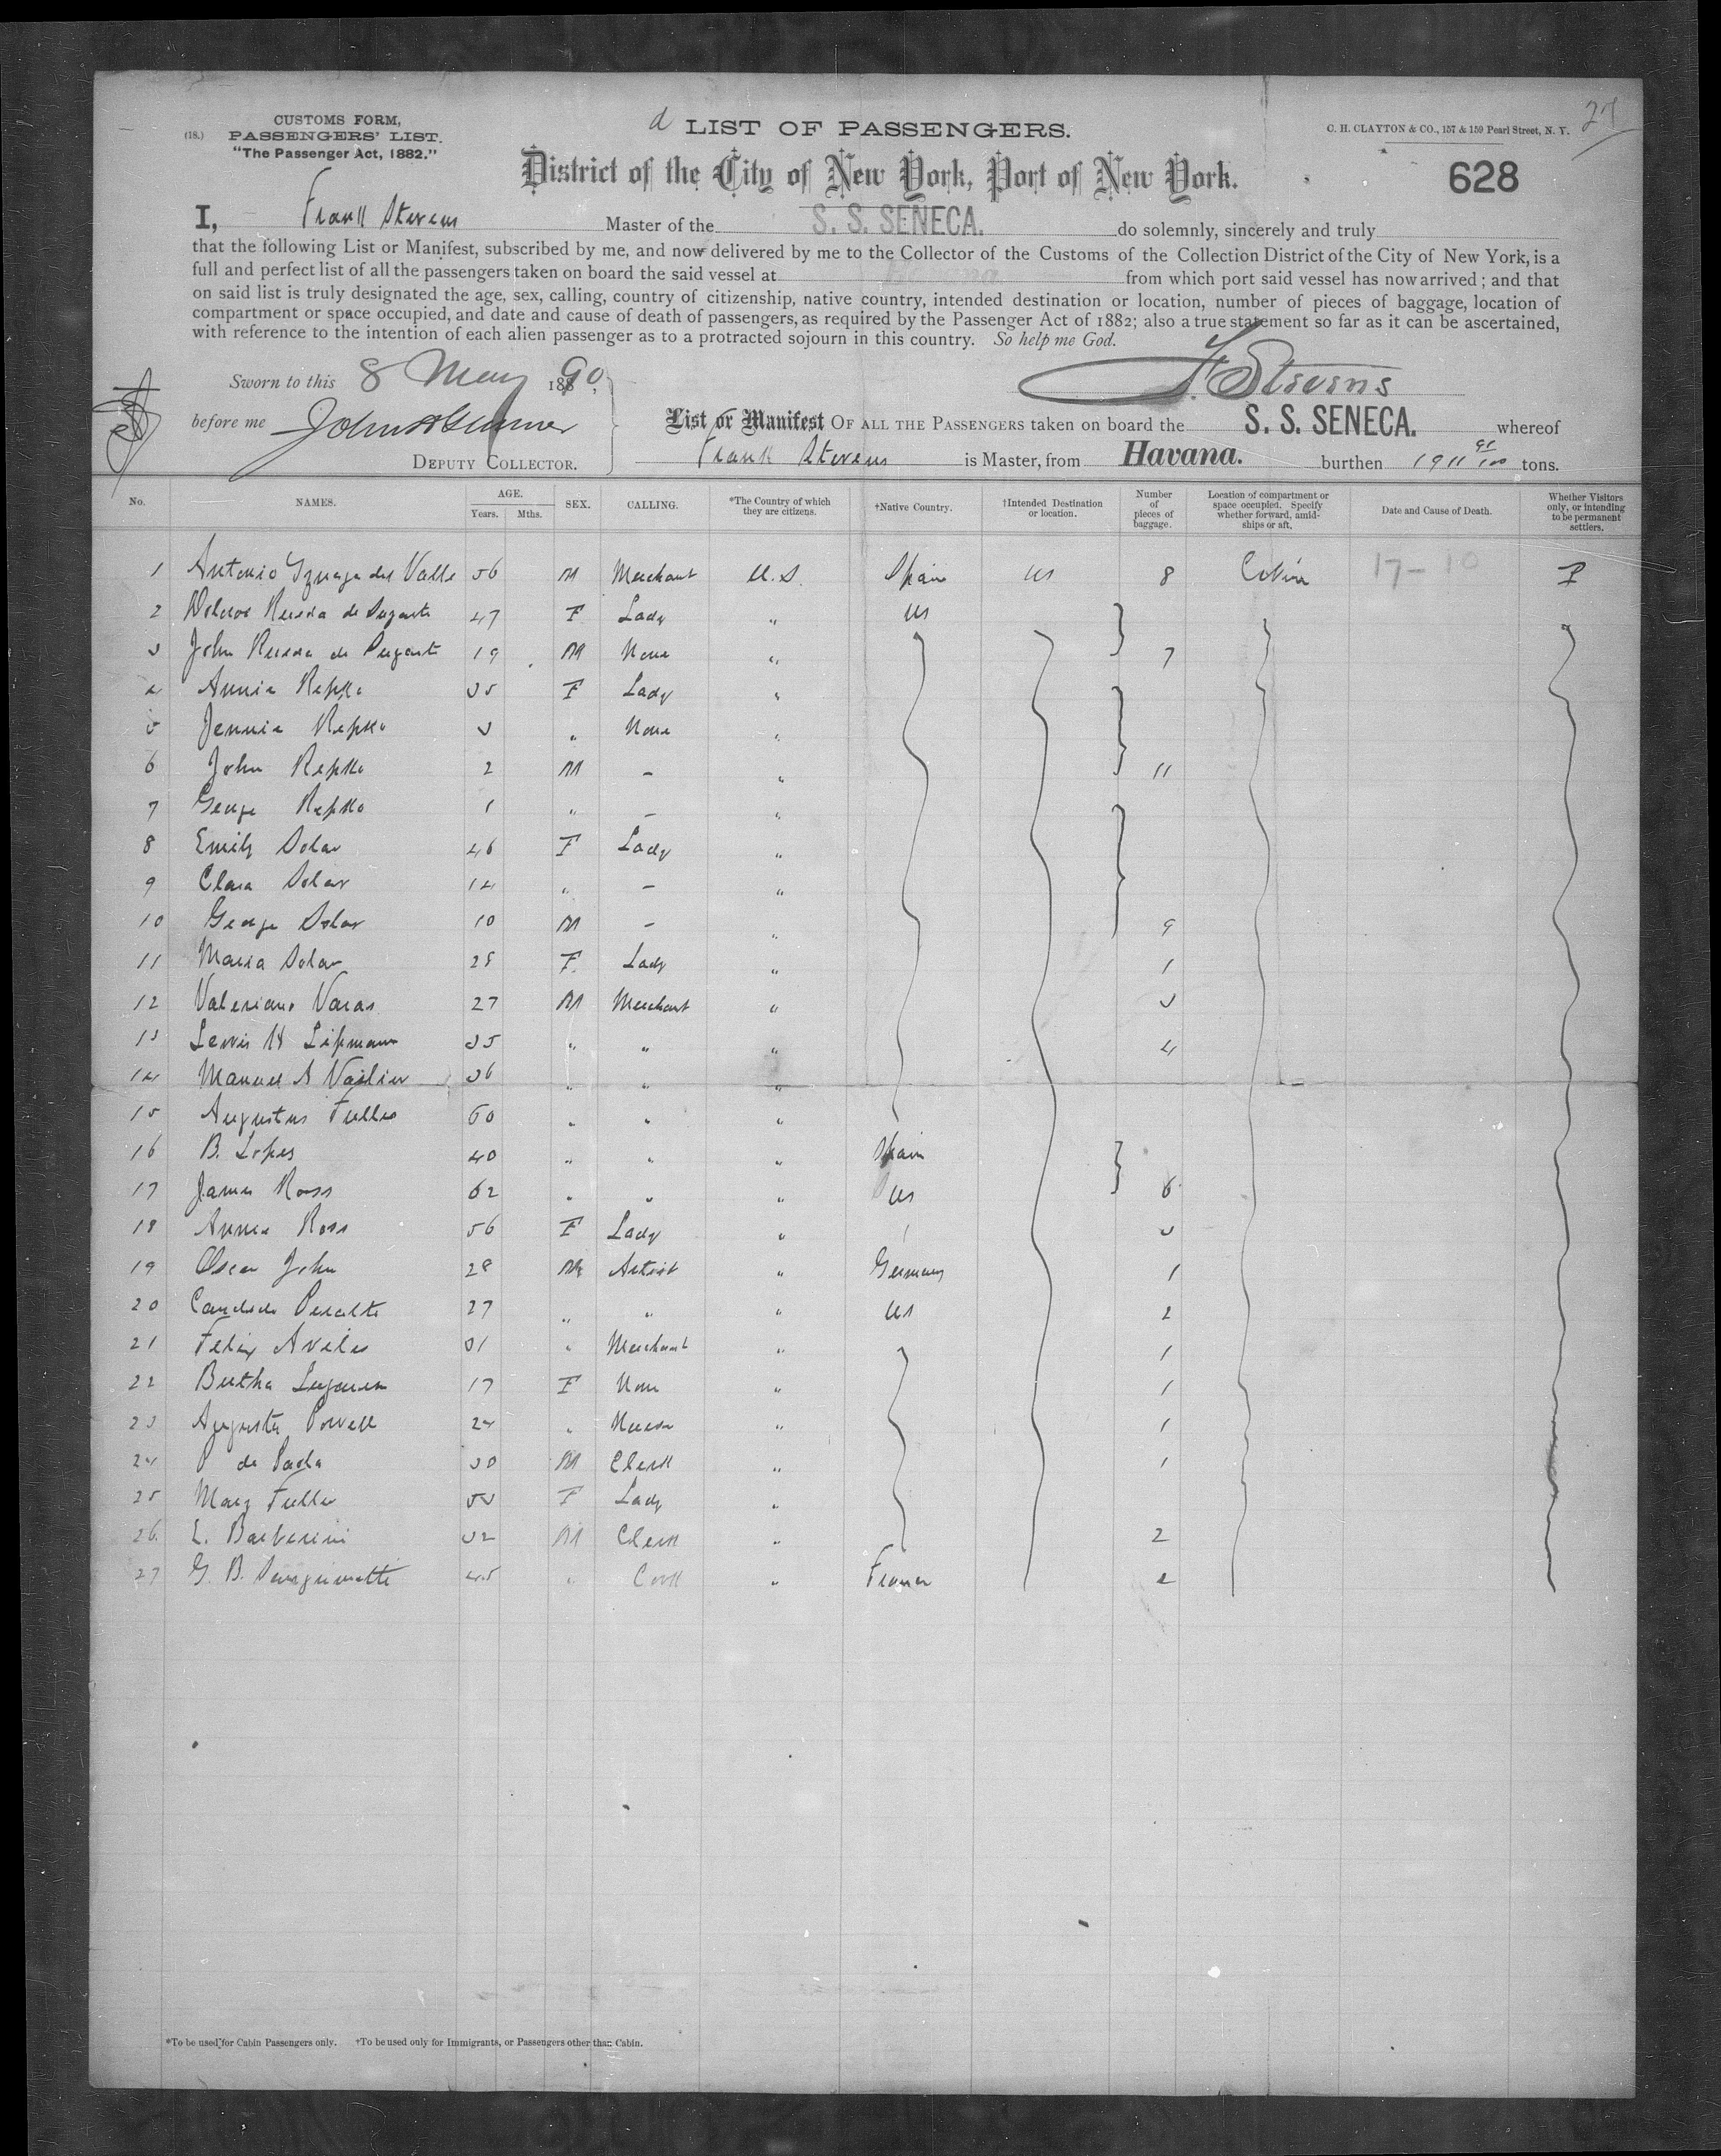 27
CUSTOMS FORM,
(18.) PASSENGERS' LIST.
"The Passenger Act, 1882."
d LIST OF PASSENGERS.
C. H. CLAYTON & CO., 157 & 159 Pearl Street, N. Y.
District of the City of New York, Port of New York.
628
I, Frank Stevens Master of the S. S. SENECA. do solemnly, sincerely and truly
that the following List or Manifest, subscribed by me, and now delivered by me to the Collector of the Customs of the Collection District of the City of New York, is a
full and perfect list of all the passengers taken on board the said vessel at from which port said vessel has now arrived; and that
on said list is truly designated the age, sex, calling, country of citizenship, native country, intended destination or location, number of pieces of baggage, location of
compartment or space occupied, and date and cause of death of passengers, as required by the Passenger Act of 1882; also a true statement so far as it can be ascertained,
with reference to the intention of each alien passenger as to a protracted sojourn in this country. So help me God.
Sworn to this 8 May 1890
F. Stevens
before me John
DEPUTY COLLECTOR.
List or Manifest OF ALL THE PASSENGERS taken on board the S. S. SENECA. whereof
Frank Stevens is Master, from Havana. burthen 1911 tons.
No. NAMES. AGE. Years. Mths. SEX. CALLING. *The Country of which they are citizens. †Native Country. †Intended Destination or location. Number of pieces of baggage. Location of compartment or space occupied. Specify whether forward, amidships or aft. Date and Cause of Death. Whether Visitors only, or intending to be permanent settlers.
1 Antonio Yznaga del Valle 56 M Merchant U.S. Spain US 8 Cabin 17-10 P
2 Rueda de 47 F Lady " US
3 John Rueda de 19 M None " 7
4 Annie Repko 35 F Lady "
5 Jennie Repko 3 " None "
6 John Repko 2 M – " 11
7 George Repko 1 " – "
8 Emily Solar 46 F Lady "
9 Clara Solar 14 " – "
10 George Solar 10 M – " 9
11 Maria Solar 28 F Lady " 1
12 Valeriano Varas 27 M Merchant " 3
13 Lewis H Lipmann 35 " " " 4
14 Manuel A 36 " " "
15 Augustus Fuller 60 " " "
16 B. Lopes 40 " " " Spain
17 James Ross 62 " " " US 6
18 Annie Ross 56 F Lady " 3
19 Oscar John 28 M Artist " Germany 1
20 Candido Peralta 27 " " " US 2
21 Felix Aviles 31 " Merchant " 1
22 Bertha 17 F None " 1
23 Augusta Powell 24 " Nurse " 1
24 P de Paola 30 M Clerk " 1
25 Mary Fuller 53 F Lady "
26 L. Barberini 32 M Clerk " 2
27 G. B. 45 " Cook " France 2
*To be used for Cabin Passengers only. †To be used only for Immigrants, or Passengers other than Cabin.